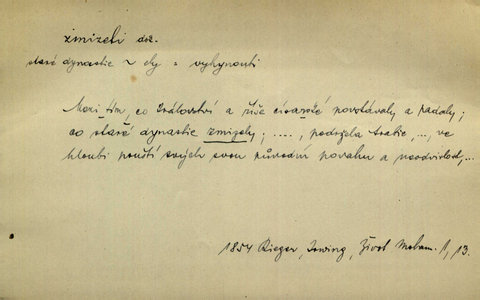 zmizeti dok.
staré dynastie ~ ely = vyhynouti
Mezi tím, co království a říše císařské povstávaly a padaly;
co staré dynastie zmizely; ...., podržela Arabie, .., ve
hloubi pouští svých svou původní povahu a neodvislost,...
1854 Rieger, Irwing, Život Moham. 1, 13.